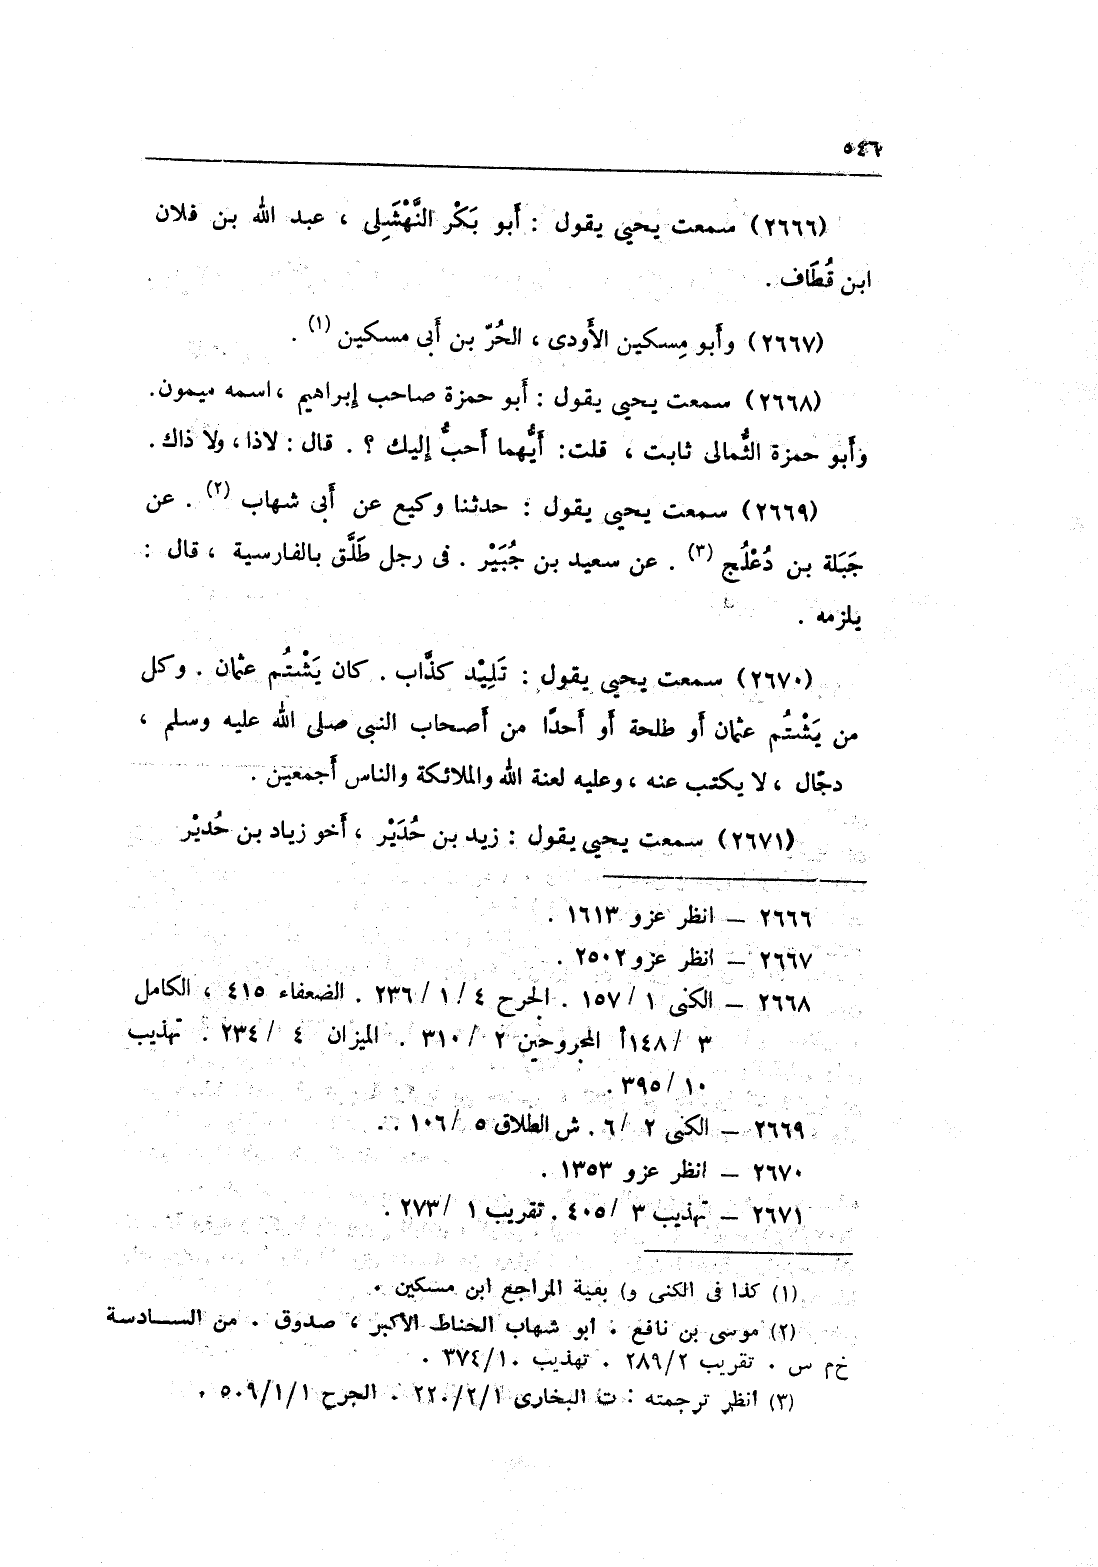 ٥٤٦
(٢٦٦٦) سمعت يحيى يقول : أَبو بَكْر النَّهْشَلِى ، عبد الله بن فلان
ابن قُطَاف .
(٢٦٦٧) وأَبو مِسكين الأَودى ، الحُرّ بن أَبى مسكين (١) .
(٢٦٦٨) سمعت يحيى يقول : أَبو حمزة صاحب إبراهيم ، اسمه ميمون .
وأَبو حمزة الثُّمالى ثابت ، قلت : أَيُّهما أَحبُّ إليك ؟ . قال : لاذا ، ولا ذاك .
(٢٦٦٩) سمعت يحيى يقول : حدثنا وكيع عن أَبى شهاب (٢) . عن
جَبَلة بن دُعْلُج (٣) . عن سعيد بن جُبَيْر . فى رجل طَلَّق بالفارسية ، قال :
يلزمه .
(٢٦٧٠) سمعت يحيى يقول : تَلِيْد كذَّاب . كان يَشْتُم عثمان . وكل
من يَشْتُم عثمان أَو طلحة أَو أَحدًا من أَصحاب النبى صلى الله عليه وسلم ،
دجّال ، لا يكتب عنه ، وعليه لعنة الله والملائكة والناس أَجمعين .
(٢٦٧١) سمعت يحيى يقول : زيد بن حُدَيْر ، أَخو زياد بن حُديْر
٢٦٦٦ – انظر عزو ١٦١٣ .
٢٦٦٧ – انظر عزو ٢٥٠٢ .
٢٦٦٨ – الكنى ١ / ١٥٧ . الجرح ٤ / ١ / ٢٣٦ . الضعفاء ٤١٥ ، الكامل
٣ / ١٤٨أ المجروحين ٢ / ٣١٠ . الميزان ٤ / ٢٣٤ . تهذيب
١٠ / ٣٩٥ .
٢٦٦٩ – الكنى ٢ / ٦ . ش الطلاق ٥ / ١٠٦ . .
٢٦٧٠ – انظر عزو ١٣٥٣ .
٢٦٧١ – تهذيب ٣ / ٤٠٥ . تقريب ١ / ٢٧٣ .
(١) كذا فى الكنى و) بقية المراجع ابن مسكين .
(٢) موسى بن نافع . ابو شهاب الحناط الأكبر ، صدوق . من السادسة
خ م س . تقريب ٢٨٩/٢ . تهذيب ٣٧٤/١٠ .
(٣) انظر ترجمته : ت البخارى ٢٢٠/٢/١ . الجرح ٥٠٩/١/١ .